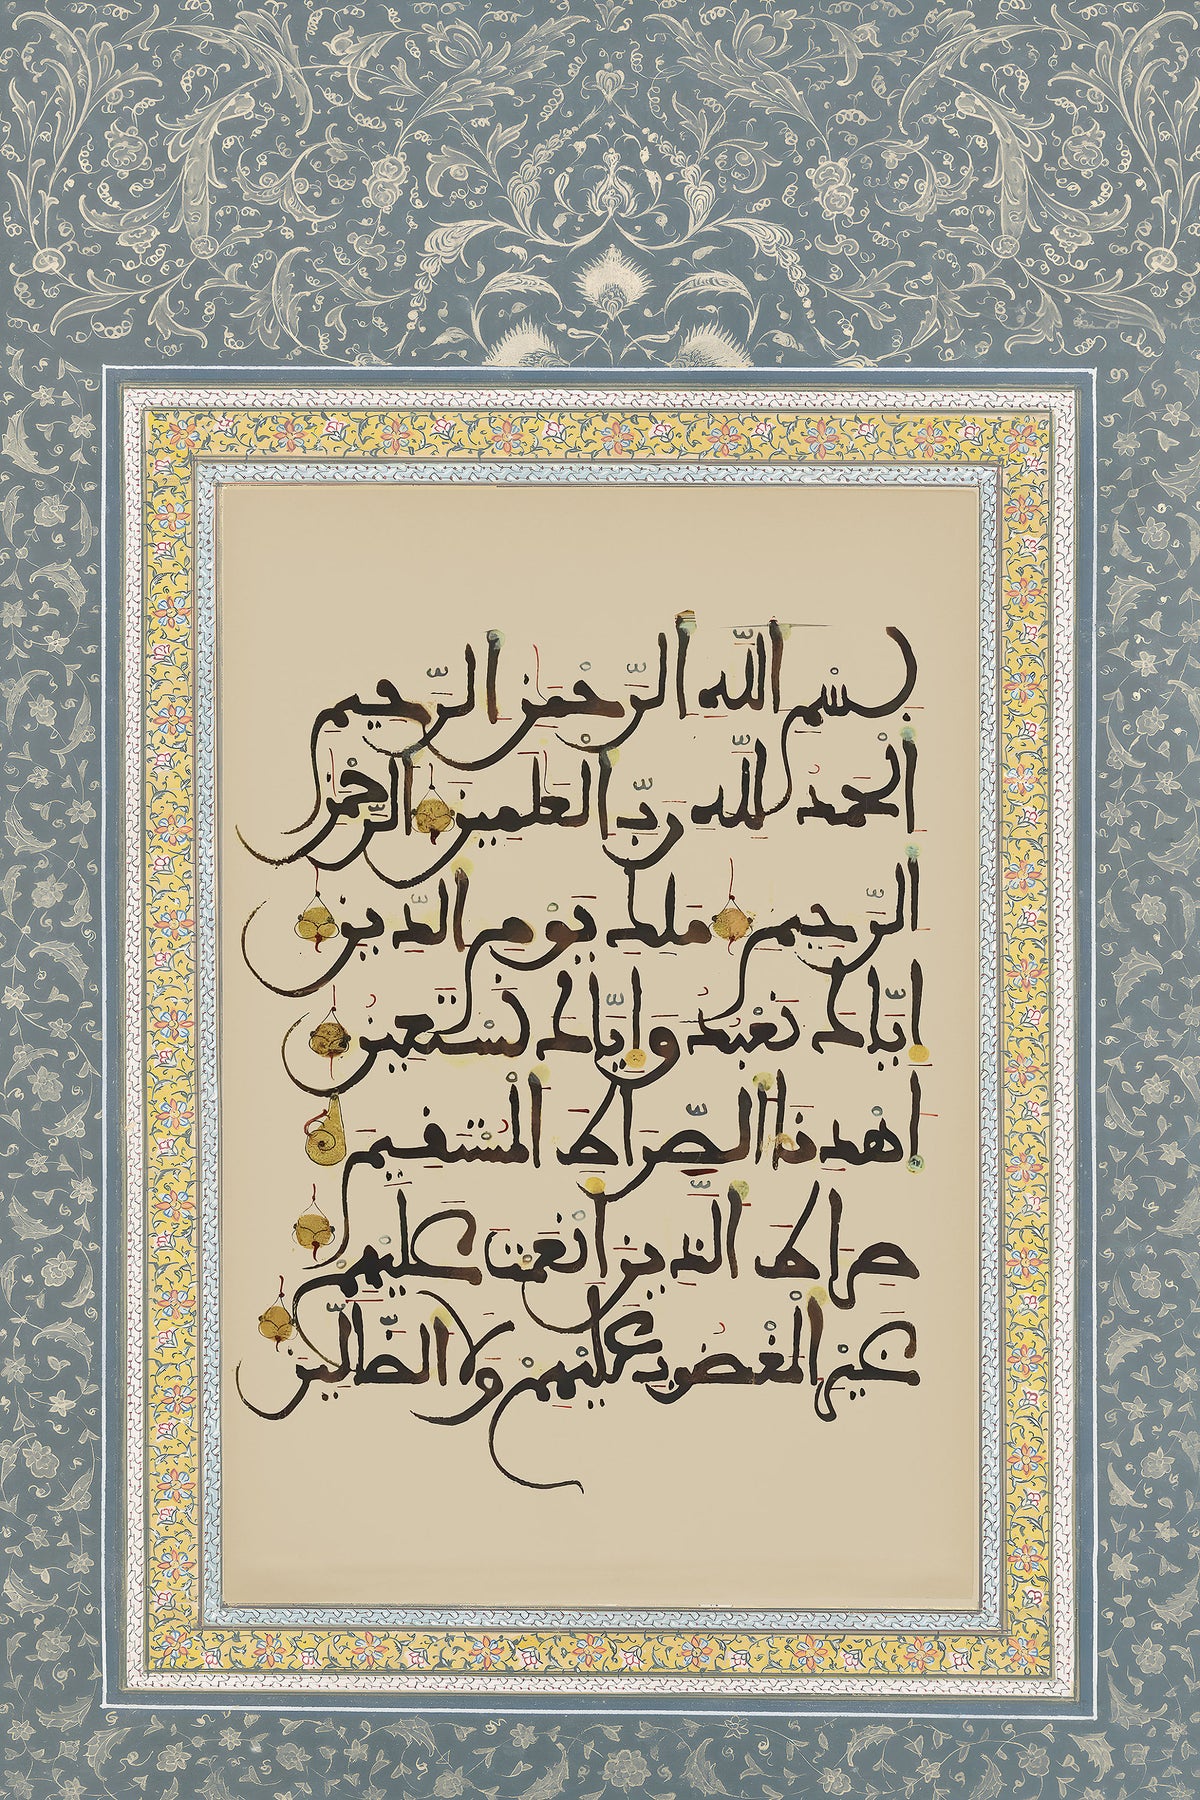 بِسْمِ اللَّهِ الرَّحْمَٰنِ الرَّحِيمِ
الْحَمْدُ لِلَّهِ رَبِّ الْعَٰلَمِينَ الرَّحْمَٰنِ
الرَّحِيمِ مَلِكِ يَوْمِ الدِّينِ
إِيَّاكَ نَعْبُدُ وَإِيَّاكَ نَسْتَعِينُ
اهْدِنَا الصِّرَاطَ الْمُسْتَقِيمَ
صِرَاطَ الَّذِينَ أَنْعَمْتَ عَلَيْهِمْ
غَيْرِ الْمَغْضُوبِ عَلَيْهِمْ وَلَا الضَّالِّينَ